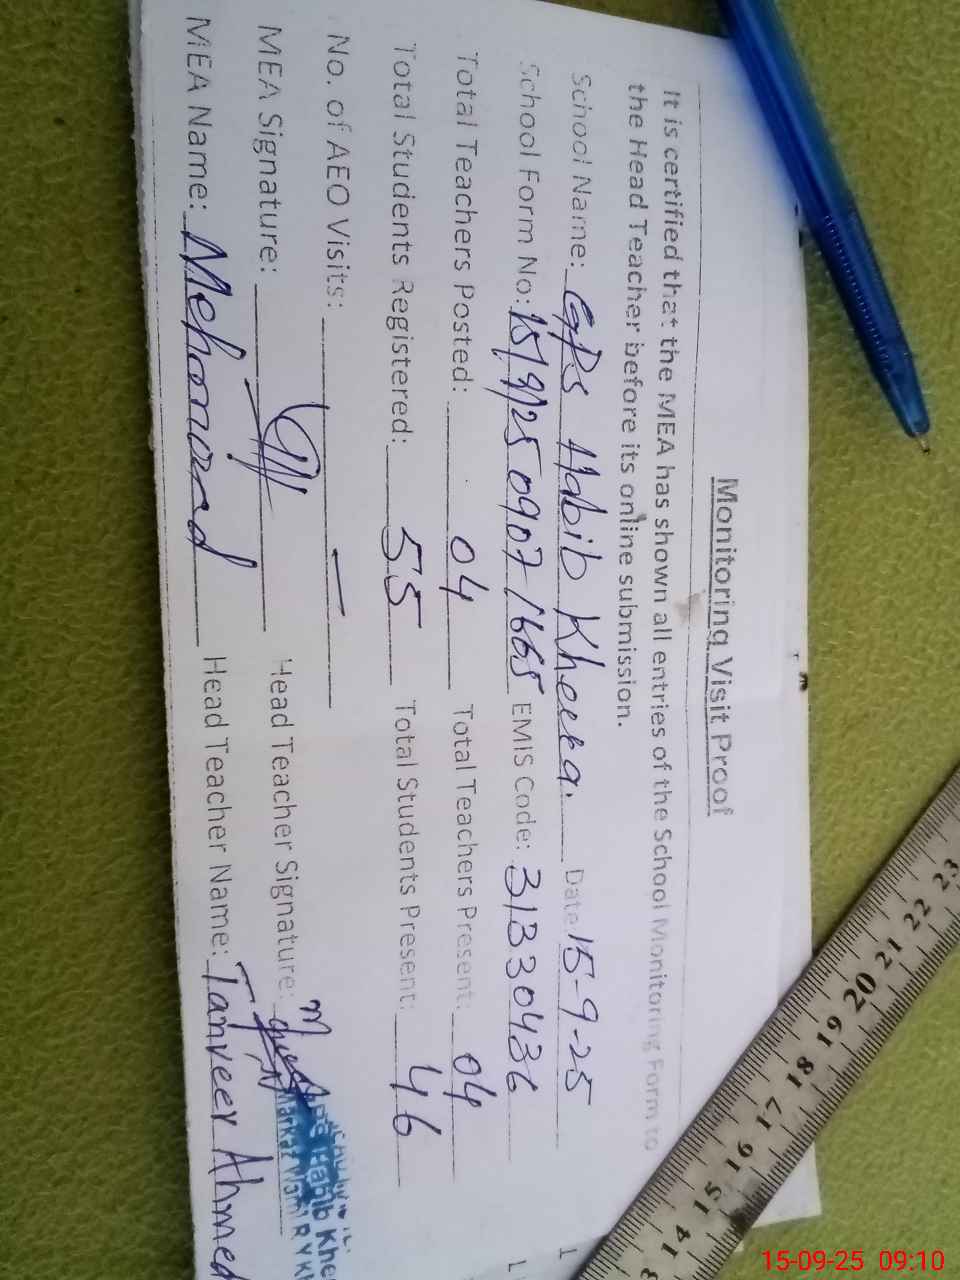 Monitoring Visit Proof
It is certified that the MEA has shown all entries of the School Monitoring Form to
the Head Teacher before its online submission.
School Name: GPS Habib Kheera. Date 15-9-25
School Form No: 15/9/25 0907 1665 EMIS Code: 31330436
Total Teachers Posted: 04 Total Teachers Present: 04
Total Students Registered: 55 Total Students Present: 46
No. of AEO Visits: —
MEA Signature: Head Teacher Signature:
Habib Khe
Markaz R Y K
MEA Name: Mehmood Head Teacher Name: Tanveer Ahmed
14 15 16 17 18 19 20 21 22 23
15-09-25 09:10